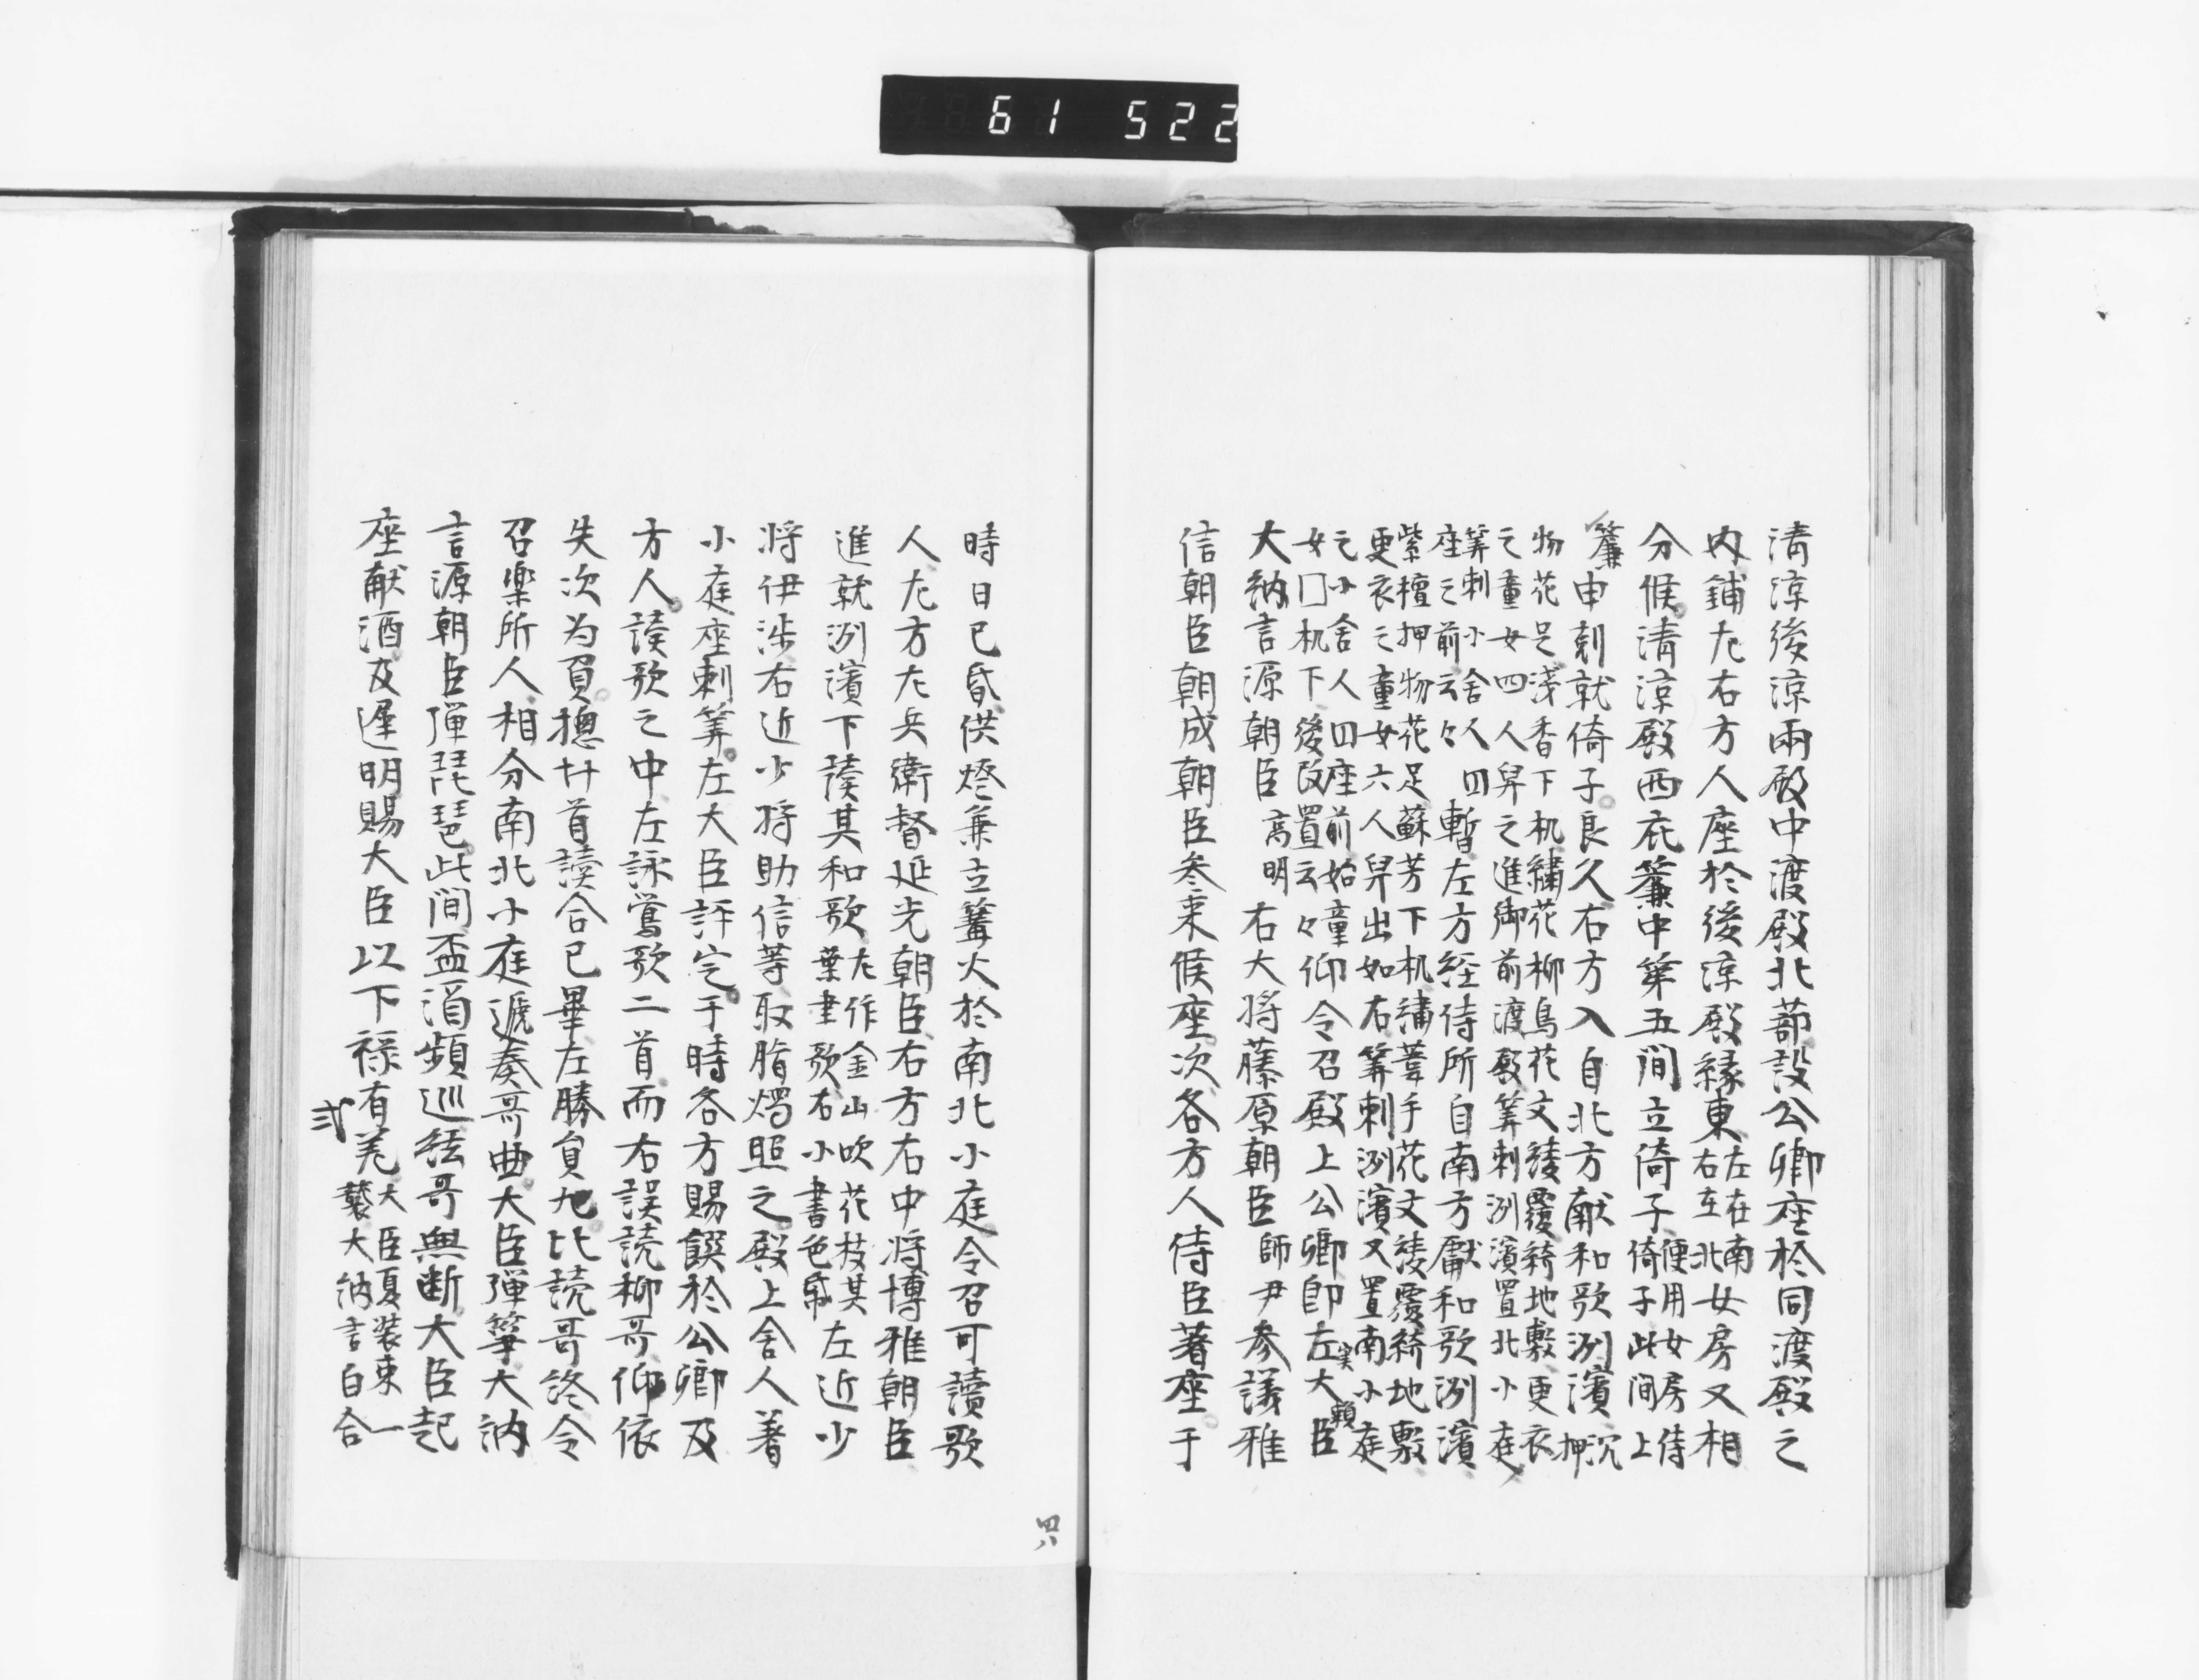 61 522
清涼後涼両殿中渡殿北蔀設公卿座於同渡殿之
内鋪左右方人座於後涼殿縁東左在南右在北女房又相
分候清涼殿西庇簾中第五間立倚子便用女房侍倚子此間上
簾申剋就倚子良久右方入自北方献和歌洲濱沉押
物花足浅香下机繡花柳鳥花文綾覆綺地敷更衣
之童女四人舁之進御前渡殿筭刺洲濱置北小庭
筭刺小舎人四
座之前云々暫左方経侍所自南方獻和歌洲濱
紫檀押物花足蘇芳下机繡葦手花文綾覆綺地敷
更衣之童女六人舁出如右筭刺洲濱又置南小庭
元小舎人四座前始童
女□机下後改置云々仰令召殿上公卿即左大臣実頼
大納言源朝臣高明右大将藤原朝臣師尹参議雅
信朝臣朝成朝臣参来候座次各方人侍臣著座于
時日已昏供燈兼立篝火於南北小庭令召可讀歌
人左方左兵衛督延光朝臣右方右中将博雅朝臣
進就洲濱下讀其和歌左作金山吹花枝其葉書歌右小書色帋左近少
将伊渉右近少将助信等取脂燭照之殿上舎人著
小庭座刺筭左大臣評定于時各方賜饌於公卿及
方人讀歌之中左詠鶯歌二首而右誤読柳哥仰依
失次为負揔廿首讀合已畢左勝負九比読哥終令
召楽所人相分南北小庭遞奏哥曲大臣弾箏大納
言源朝臣弾琵琶此間盃酒頻巡絃哥無断大臣起
座献酒及遅明賜大臣以下禄有差大臣夏装束一襲大納言白合
弐
四八